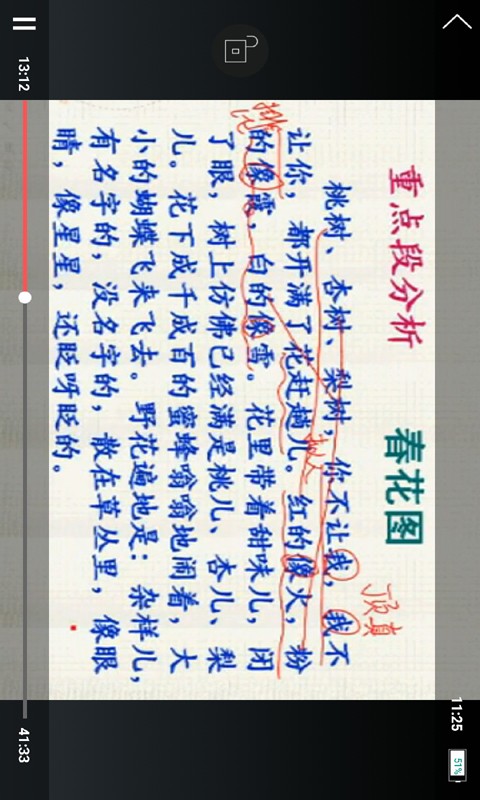 11:25
51%
重点段分析
春花图
桃树、杏树、梨树，你不让我，我不
让你，都开满了花赶趟儿。红的像火，粉
的像霞，白的像雪。花里带着甜味儿，闭
了眼，树上仿佛已经满是桃儿、杏儿、梨
儿。花下成千成百的蜜蜂嗡嗡地闹着，大
小的蝴蝶飞来飞去。野花遍地是：杂样儿，
有名字的，没名字的，散在草丛里，像眼
睛，像星星，还眨呀眨的。
顶真
拟人
排比
13:12
41:33